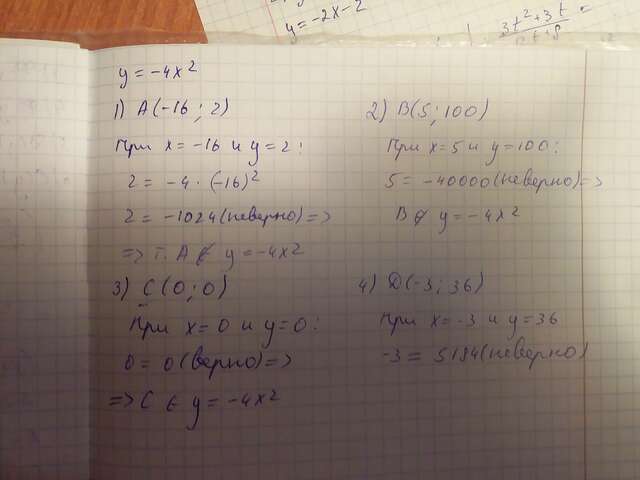 y = -2x - 2
3t² + 3t
y = -4x²
1) A(-16; 2)
При x = -16 и y = 2:
2 = -4 · (-16)²
2 = -1024 (неверно) =>
=> т. A ∉ y = -4x²
2) B(5; 100)
При x = 5 и y = 100:
5 = -40000 (неверно) =>
B ∉ y = -4x²
3) C(0; 0)
При x = 0 и y = 0:
0 = 0 (верно) =>
=> C ∈ y = -4x²
4) D(-3; 36)
При x = -3 и y = 36
-3 = 5184 (неверно)